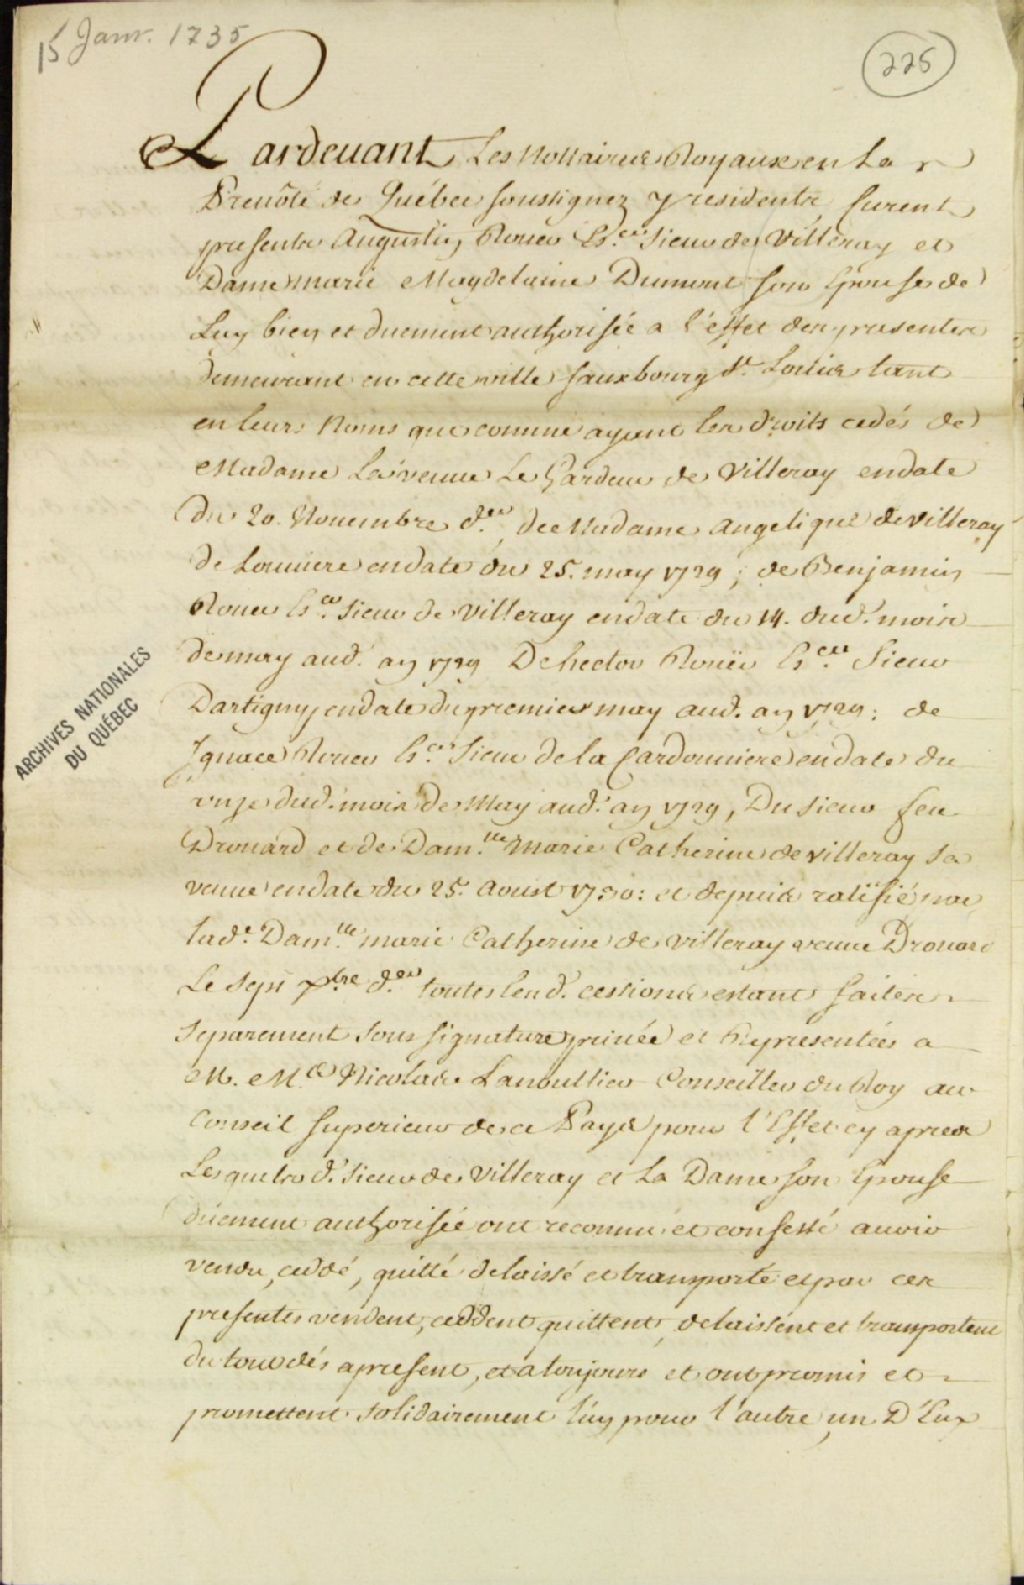 15 Janv. 1735
226
Pardevant Les Nottaires Royaux en La
Prevôté de Québec soussignez y residents furent
presents Augustin Rouer Es.er Sieur de Villeray et
Dame Marie Magdelaine Dumont son Epouse de
Luy bien et duement authorisée a l'effet des presentes
demeurant en cette ville fauxbourg St. Loüis tant
en leurs Noms que comme ayant les droits cedés de
Madame La veuve Le Gardeur de Villeray en date
du 20. Novembre d.er, de Madame Angelique de Villeray
de Louviere en date du 25. may 1729; de Benjamin
Rouer Es.er Sieur de Villeray en date du 14. dud. mois
de may aud. an 1729 De hector Rouër Es.er Sieur
Dartigny, en date du premier may aud. an 1729: de
Ignace Rouer Es.er Sieur de la Cardonniere en date du
dud. mois de May aud. an 1729, Du Sieur feu
Drouard et de Dam.lle Marie Catherine de Villeray sa
veuve en date du 25. Aoust 1730: et depuis ratifié par
lad.e Dam.lle marie Catherine de Villeray veuve Drouard
Le Sept 7.bre d.er toutes lesd. cessions estant faites
separement sous signature privée et Representées a
M. M.e Nicolas Lanoullier Conseiller du Roy au
Conseil Superieur de ce Pays pour l'Effet cy apres
Lesquels d. Sieur de Villeray et La Dame son Epouse
düement authorisée ont reconnu et confessé avoir
vendu, ceddé, quitté delaissé et transporté et par ces
presentes vendent, ceddent quittent, delaissent et transportent
du tout dés apresent, et a toujours et ont promis et
promettent solidairement l'un pour l'autre, un D'Eux
ARCHIVES NATIONALES
DU QUÉBEC